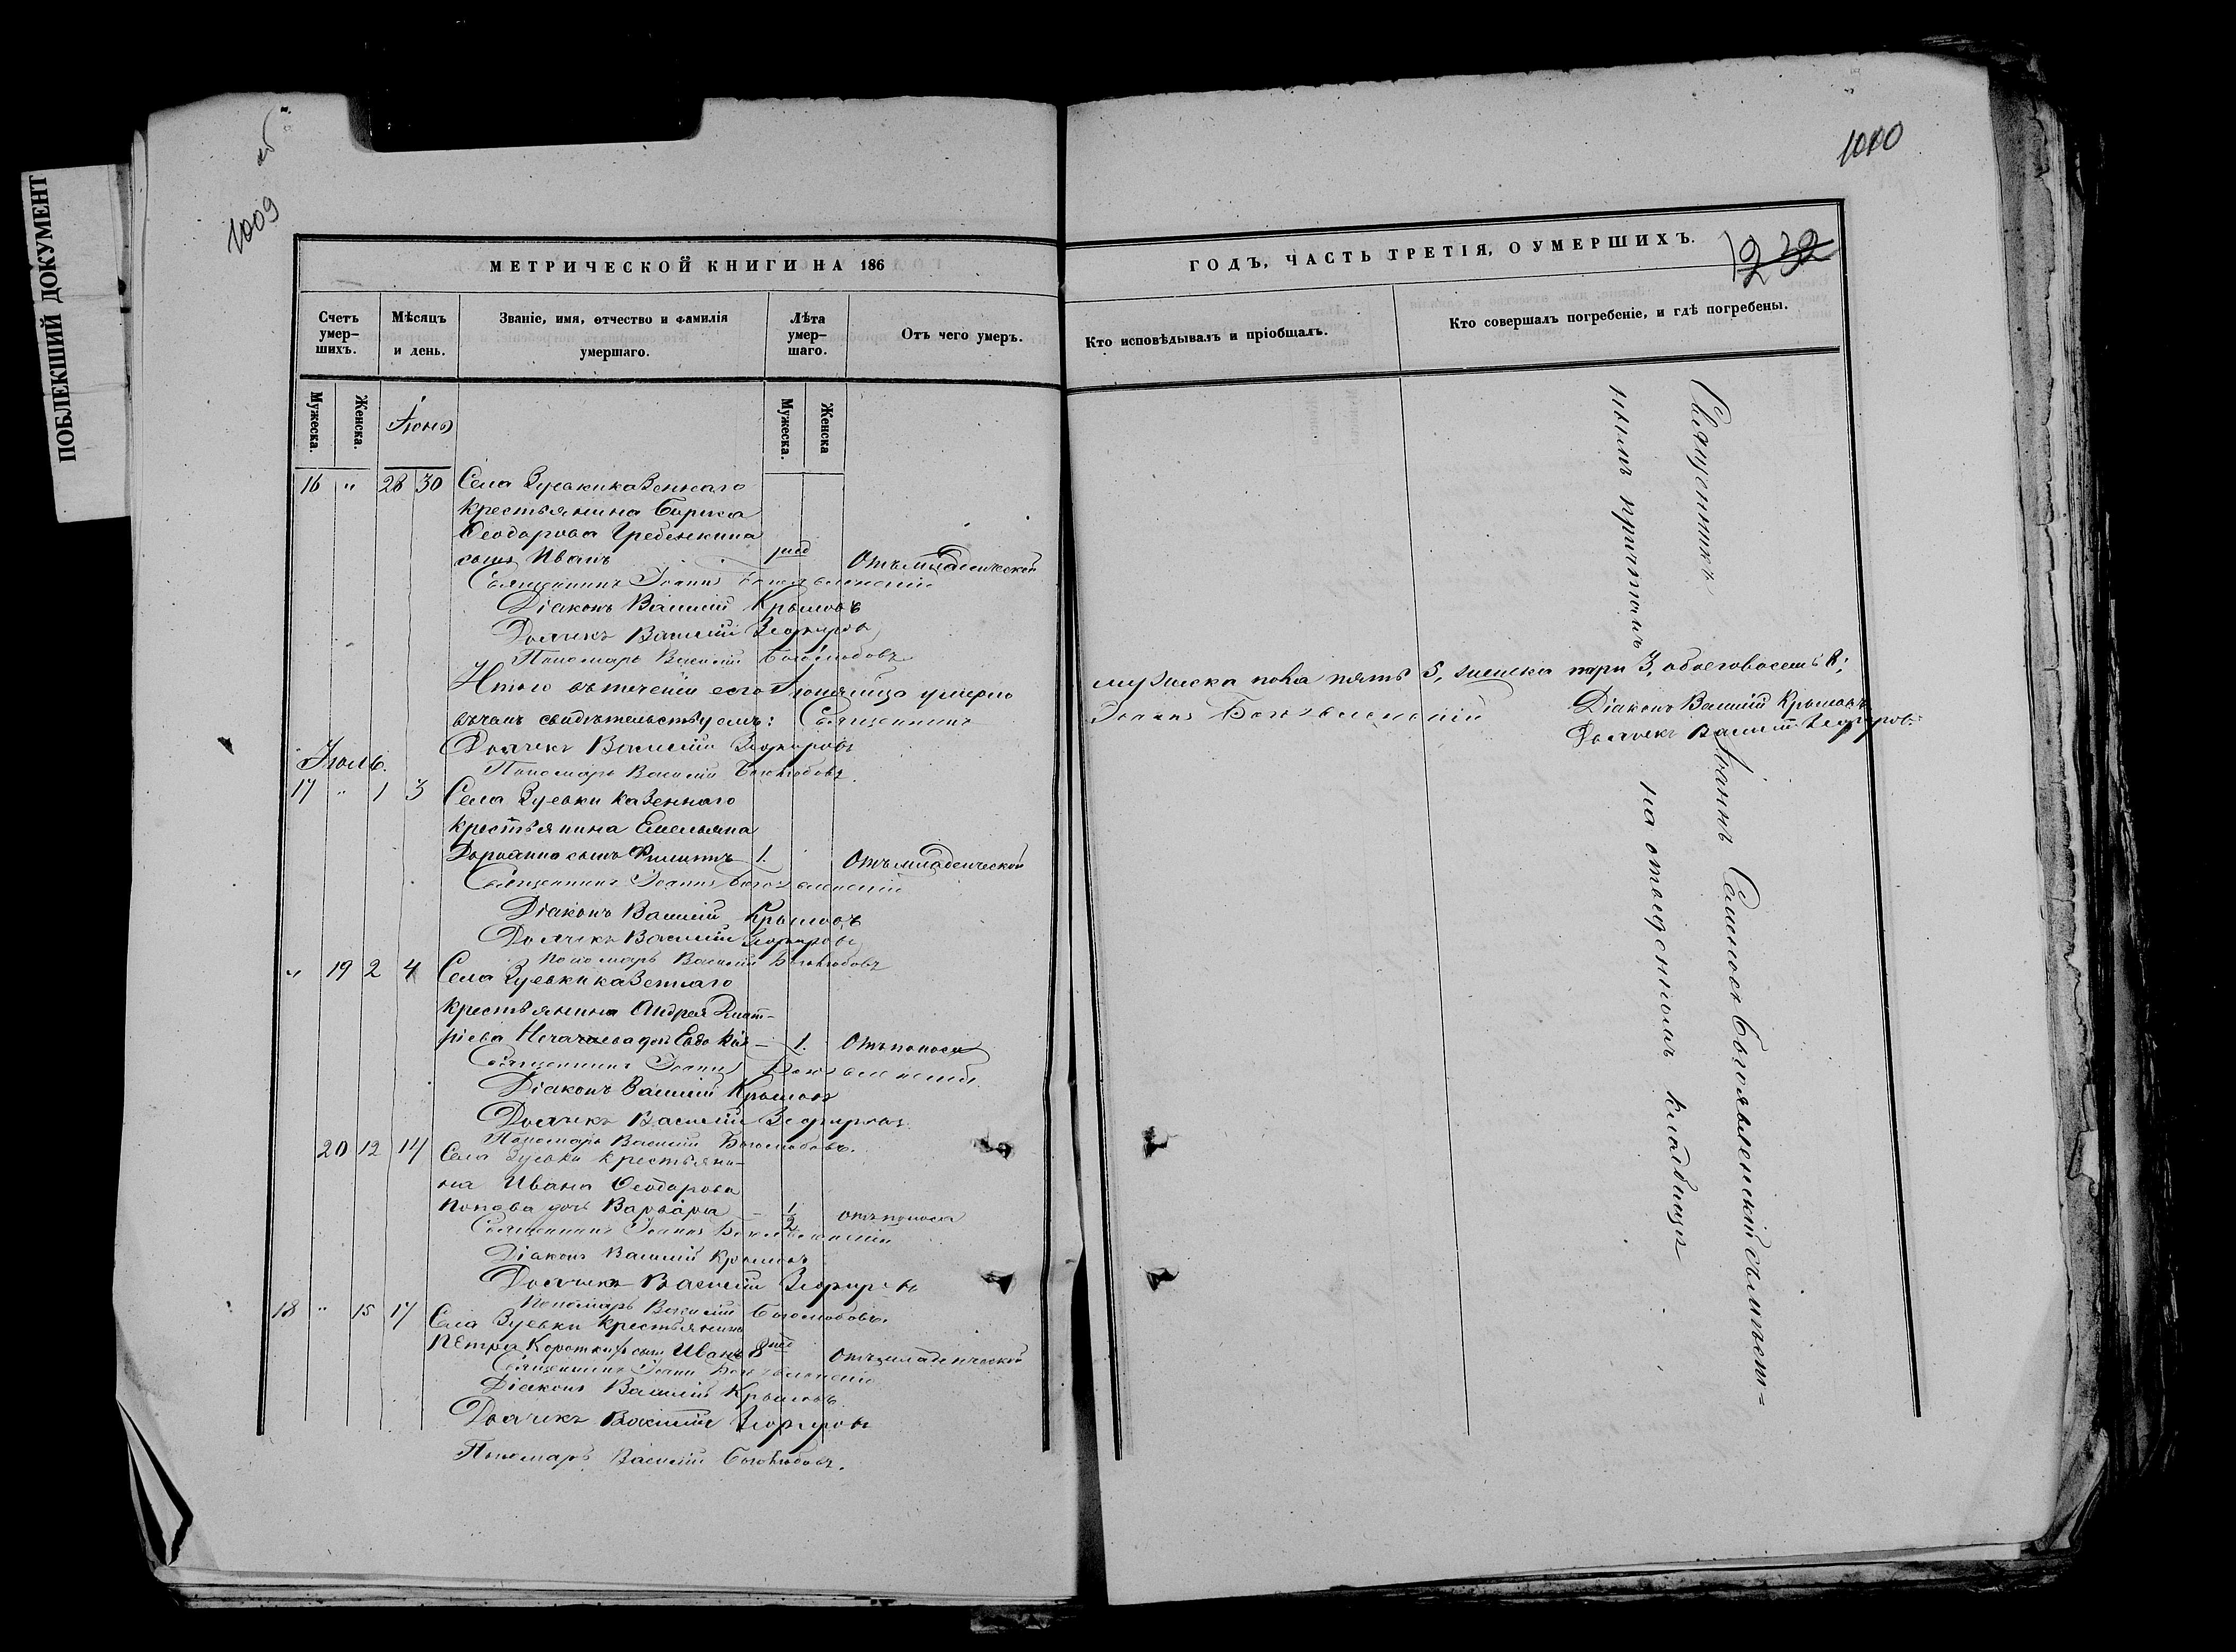 ПОБЛЕКШИЙ ДОКУМЕНТ
1009 об
МЕТРИЧЕСКОЙ КНИГИ НА 186
Счетъ умер-
шихъ.
Мѣсяцъ
и день.
Званіе, имя, отчество и фамилія
умершаго.
Лѣта
умер-
шаго.
Отъ чего умеръ.
Мужеска.
Женска.
Іюнь
Мужеска.
Женска
16 " 28 30 Села Зуевки казеннаго
крестьянина Бориса
Ѳеодорова Гребенкина
сынъ Иванъ Отъ младенческой
Священникъ Іоаннъ Богоявленскій
Діаконъ Василій Крыловъ
Дьячекъ Василій Зефировъ
Пономарь Василій Боголюбовъ
Итого въ теченіи сего Іюня м-ца умерло
въ чемъ свидѣтельствуемъ: Священникъ
Дьячекъ Василій Зефировъ
Пономарь Василій Боголюбовъ.
Іюль.
17 " 1 3 Села Зуевки казеннаго
крестьянина Емельяна
сынъ Филиппъ 1. Отъ младенческой
Священникъ Іоаннъ Богоявленскій
Діаконъ Василій Крыловъ
Дьячекъ Василій Зефировъ
Пономарь Василій Боголюбовъ
" 19 2 4 Села Зуевки казеннаго
крестьянина Андрея Дмит-
ріева Нечачаева дочь Евдокія — 1. Отъ поноса
Священникъ Іоаннъ Богоявленскій
Діаконъ Василій Крыловъ
Дьячекъ Василій Зефировъ
Пономарь Василій Боголюбовъ.
20 12 14 Села Зуевки крестьяни-
на Ивана Ѳеодорова
Попова дочь Варвара — 1/2 отъ поноса
Священникъ Іоаннъ Богоявленскій
Діаконъ Василій Крыловъ
Дьячекъ Василій Зефировъ
Пономарь Василій Боголюбовъ.
18 " 15 17 Села Зуевки крестьянина
Петра Короткихъ сынъ Иванъ 8 нед Отъ младенческой
Священникъ Іоаннъ Богоявленскій
Діаконъ Василій Крыловъ.
Дьячекъ Василій Зефировъ
Пономарь Василій Боголюбовъ.
1010
ГОДЪ, ЧАСТЬ ТРЕТІЯ, О УМЕРШИХЪ.
1232
Кто исповѣдывалъ и пріобщалъ.
Кто совершалъ погребеніе, и гдѣ погребены.
мужеска пола пять 5, женска три 3, обоего восемь 8;
Іоаннъ Богоявленскій
Діаконъ Василій Крыловъ
Дьячекъ Василій Зефировъ.
Священникъ Іоаннъ Семеновъ Богоявленскій съ мѣст-
нымъ причтомъ на отведенномъ кладбищѣ